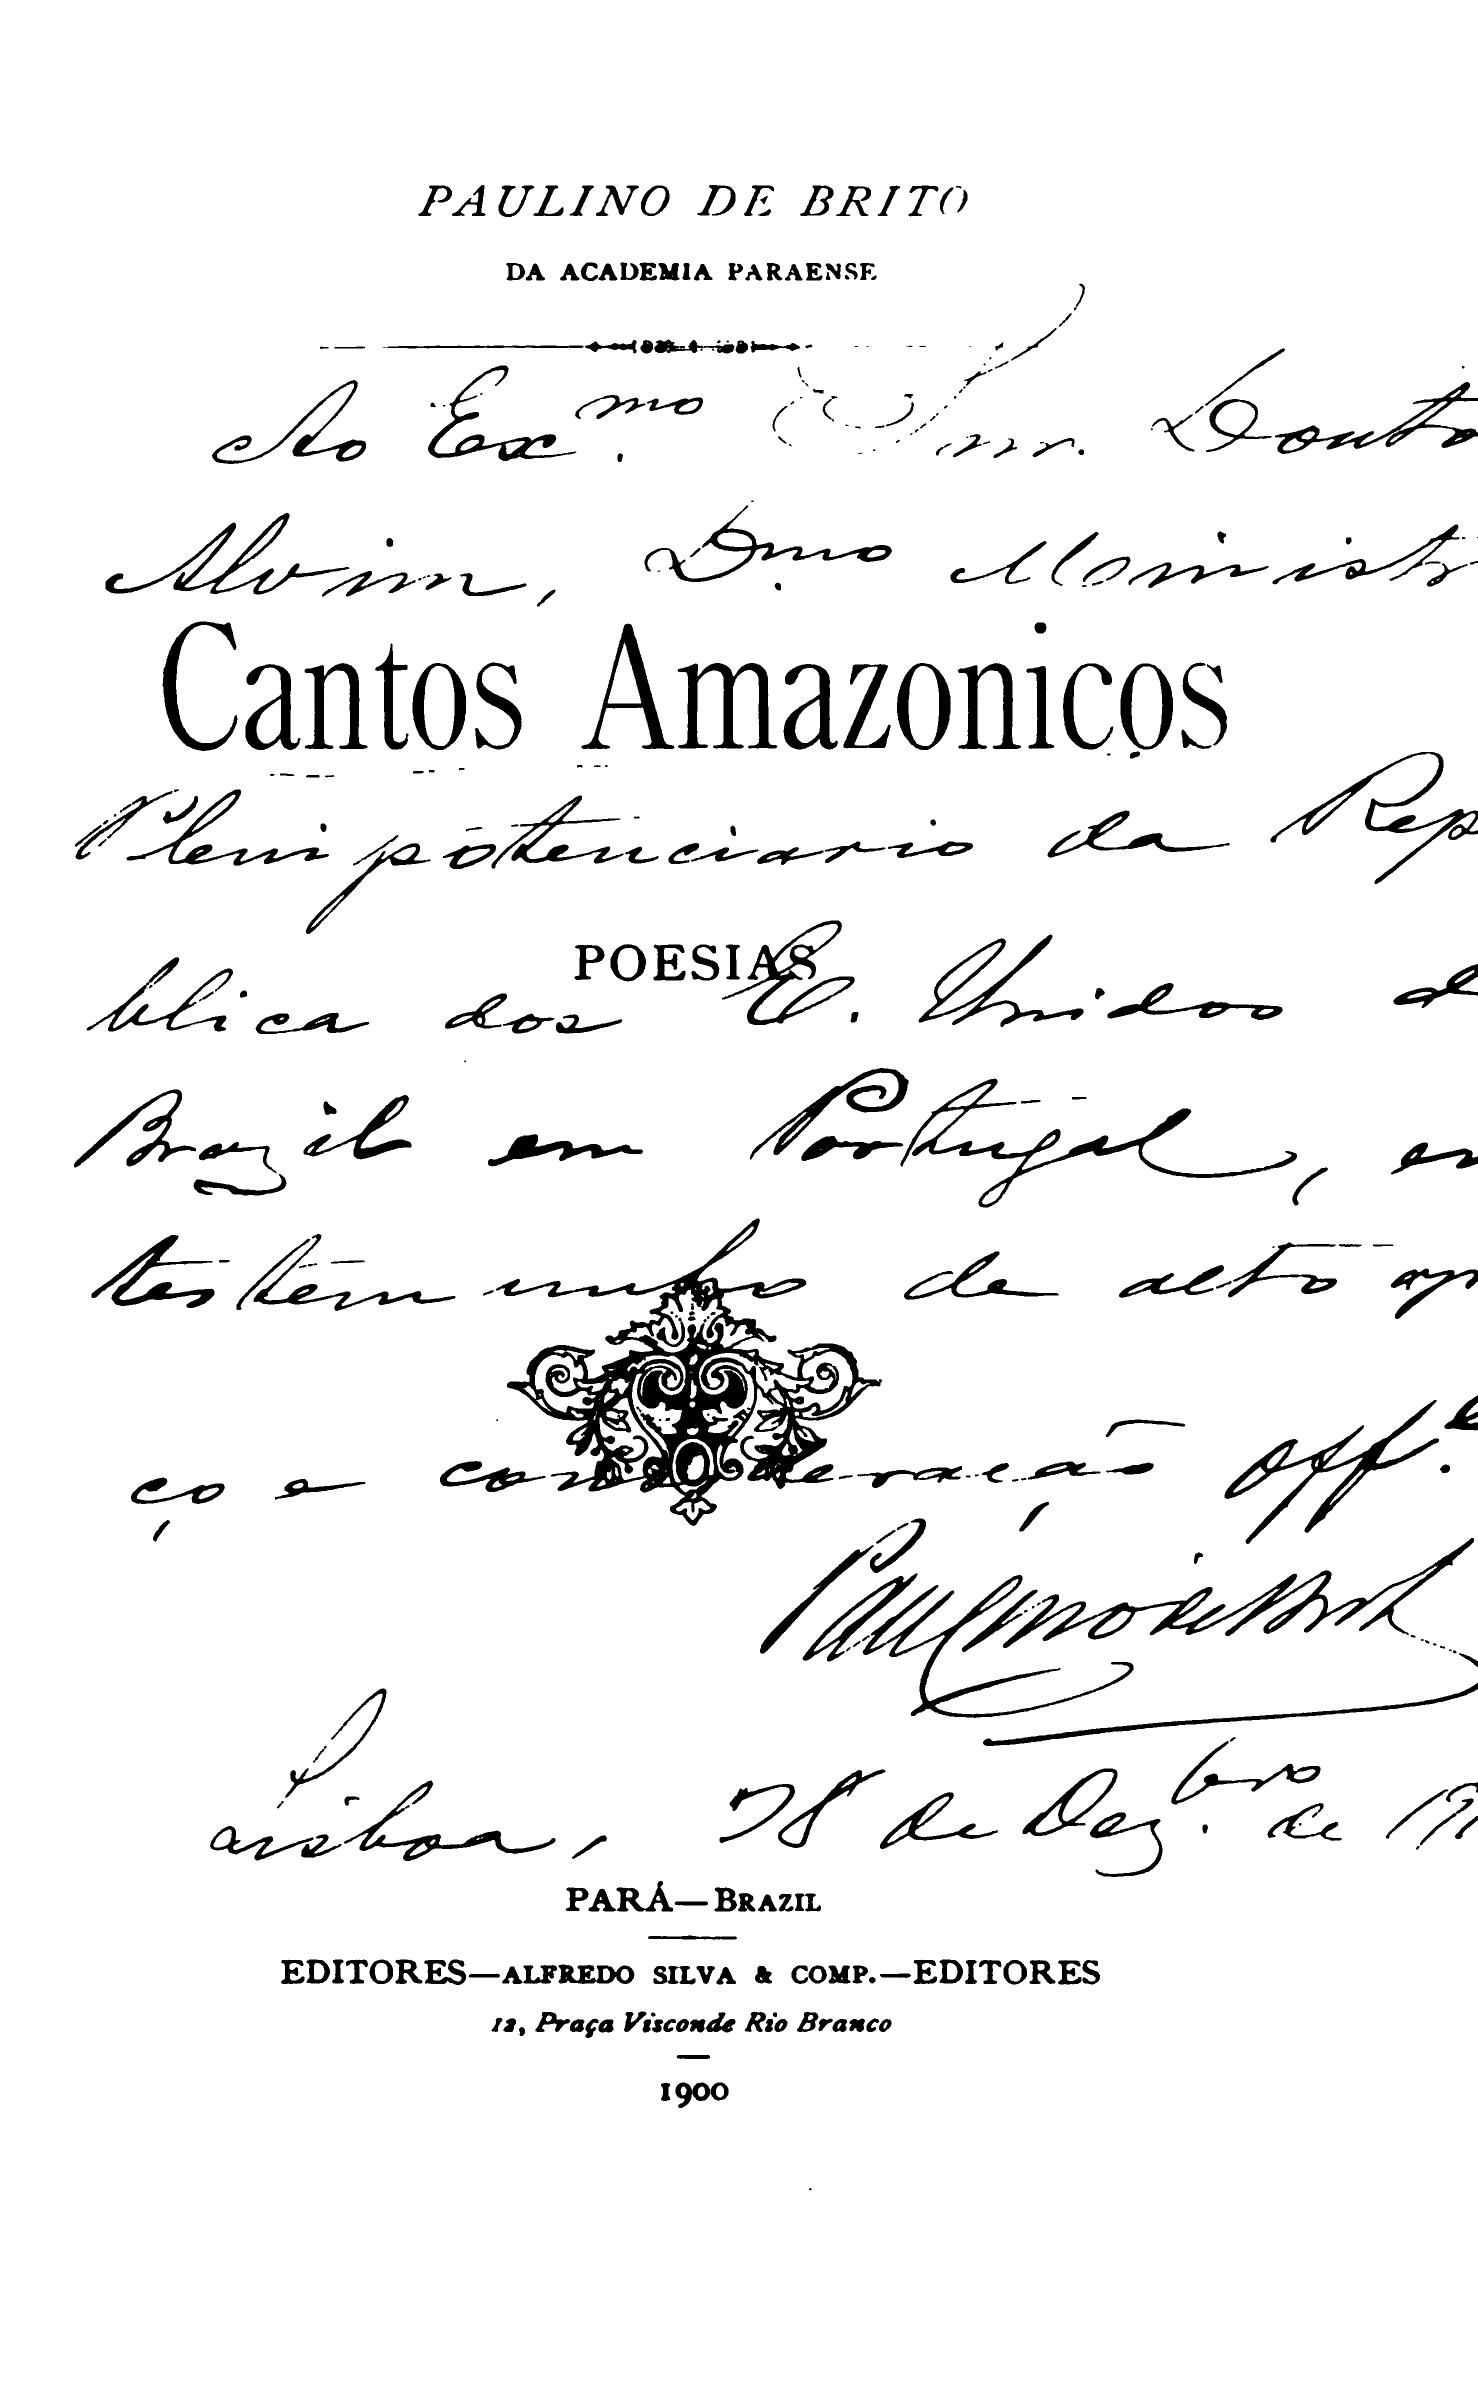 PAULINO DE BRITO
DA ACADEMIA PARAENSE
Ao Ex.mo Snr. Douto
Alvim, D.mo Ministr
Cantos Amazonicos
Plenipotenciario da Rep
POESIAS
blica dos E. Unidos d
Brazil em Portugal, em
testemunho de alto apr
ço e consideração off.e
Paulino de Brito
Lisboa, 28 de Dez.bro de 19
PARÁ—BRAZIL
EDITORES—ALFREDO SILVA & COMP.—EDITORES
12, Praça Visconde Rio Branco
1900